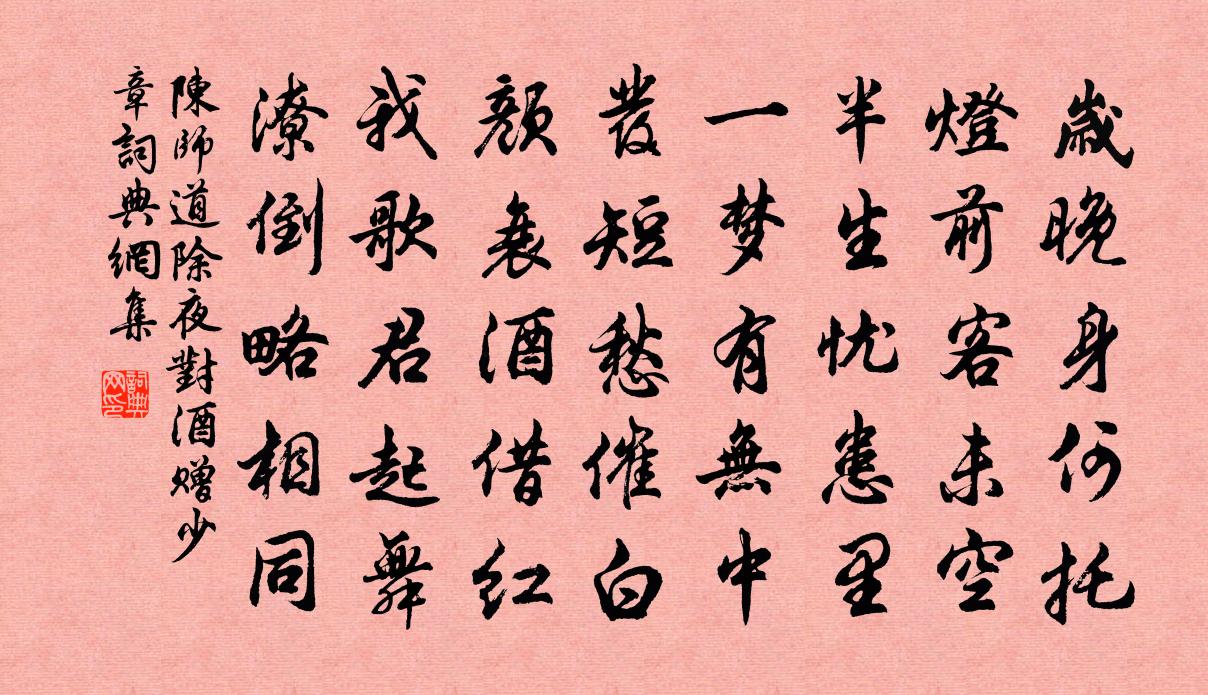 歲晚身何托
燈前客未空
半生忧患里
一梦有無中
發短愁催白
顏衰酒借红
我歌君起舞
潦倒略相同
陳師道除夜對酒贈少
章詞典網集
詞典网印